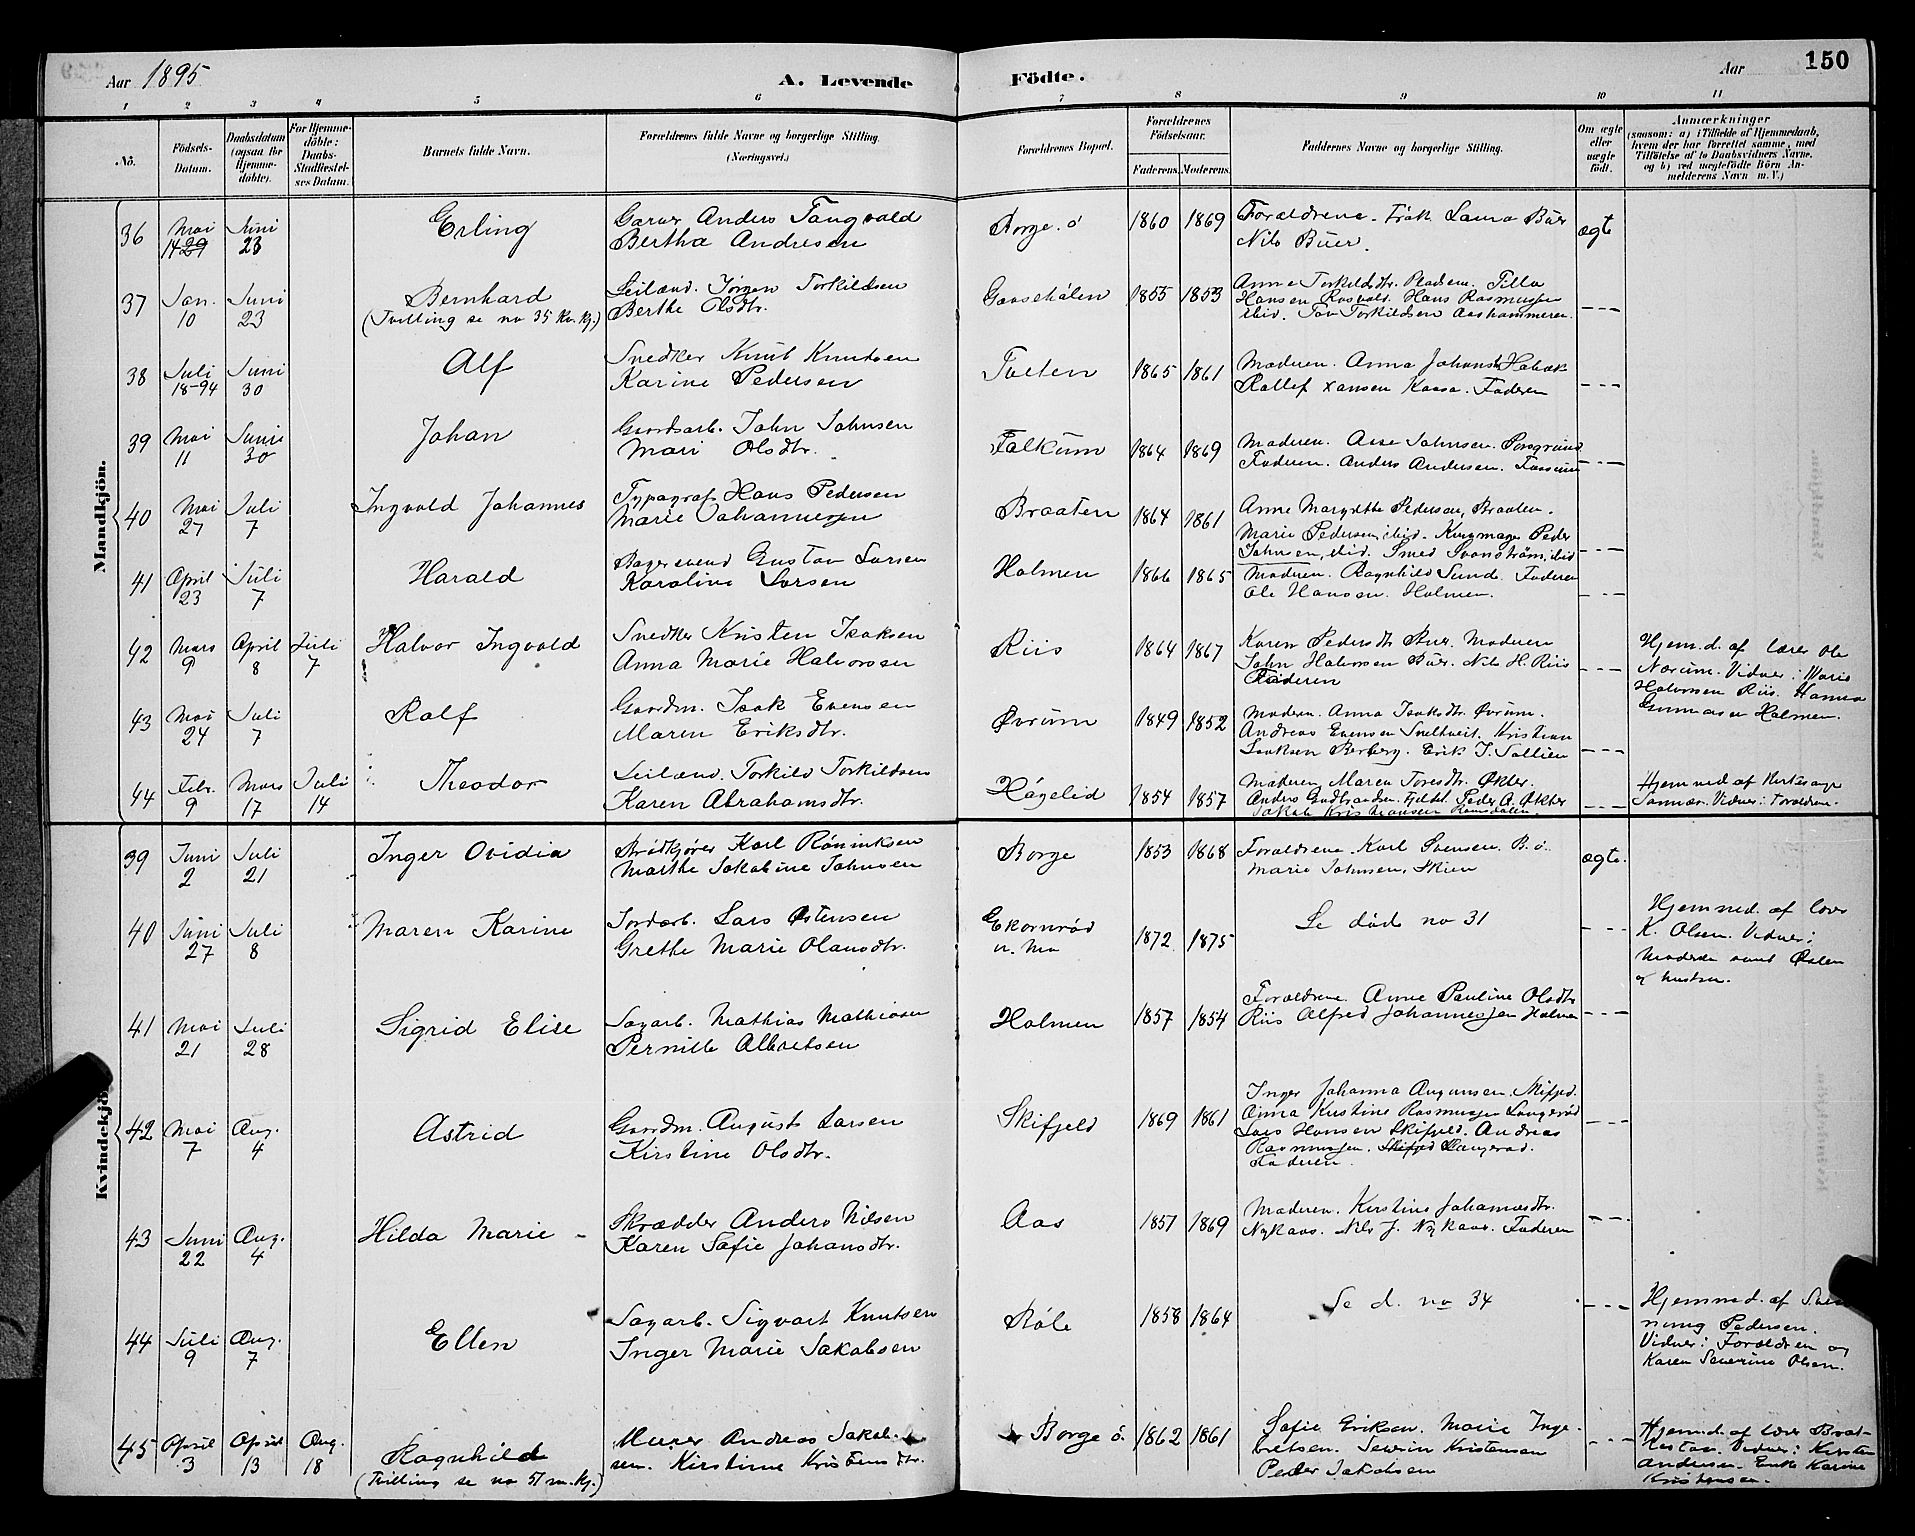 Aar 1895
A. Levende
Födte.
Aar
150
1 2 3 4 5 6 7 8 9 10 11
No.
Födsels-Datum.
Daabsdatum (ogsaa for Hjemme-döbte).
For Hjemme-döbte: Daabs-Stadfæstel-ses Datum.
Barnets fulde Navn.
Forældrenes fulde Navne og borgerlige Stilling. (Næringsvei.)
Forældrenes Bopæl.
Forældrenes Födselsaar.
Faderens. Moderens.
Faddernes Navne og borgerlige Stilling.
Om ægte eller uægte födt.
Anmærkninger
(saasom: a) i Tilfælde af Hjemmedaab, hvem der har forrettet samme, med Tilföielse af to Daabsvidners Navne, og b) ved uægtefödte Börn An-melderens Navn m. V.)
Mandkjön.
36 Mai 14 29 Juni 23 Erling Garver Anders Tangvald
Bertha Andresen
Borge. ö 1860 1869 Forældrene. Frök. Laura Büer
Nils Büer. ægt
37 Jan. 10 Juni 23 Bernhard
(Tvilling se no 35 Kv. Kj.)
Leilænd. Jörgen Torkildsen
Berthe Olsdtr.
Gaasehölen 1855 1853 Anne Torkildsdtr. Pladsen. Tilla
Hansen Rosvald. Hans Rasmussen
ibid. Tov Torkildsen Aashammeren. ---
38 Juli 18-94 Juni 30 Alf Snedker Knut Knutsen
Karine Pedersen
Tveten 1865 1861 Moderen. Anna Johansdtr
Kaasa. Faderen ---
39 Mai 11 Juni 30 Johan Gaardsarb. John Johnsen
Mari Olsdtr.
Falkum 1864 1869 Moderen. Aase Johnsen. Porsgrund
Faderen. Anders Andersen. Fossum ---
40 Mai 27 Juli 7 Ingvald Johannes Typograf Hans Pedersen
Marie Johannesen
Braaten 1864 1861 Anne Margrethe Pedersen, Braaten.
Marie Pedersen, ibid. Peder
Johnsen, ibid. Smed Svanström, ibid ---
41 April 23 Juli 7 Harald Bagersvend Gustav Larsen
Karoline Larsen
Holmen 1866 1865 Moderen. Ragnhild Lund. Faderen
Ole Hansen. Holmen. ---
42 Mars 9 April 8 Juli 7 Halvor Ingvald Snedker Kristen Isaksen
Anna Marie Halvorsen
Riis 1864 1867 Karen Pedersdtr Bur. Moderen
John Halvorsen Büer. Nils H. Riis
Faderen ---
Hjem.d. af lærer Ole
Nærum. Vidner: Maria
Halvorsen Riis. Hanna
Gunnarsen Holmen.
43 Mai 24 Juli 7 Rolf Gaardm. Isak Evensen
Maren Eriksdtr.
Øvrum 1849 1852 Moderen. Anna Isaksdtr. Øvrum.
Andreas Evensen Sneltveit. Kristian
Isaksen Berberg. Erik J. Sollien ---
44 Febr. 9 Mars 17 Juli 14 Theodor Leilænd. Torkild Torkildsen
Karen Abrahamsdtr.
Högelid 1854 1857 Moderen. Maren Toresdtr. Økter
Anders Gudbrandsen. Fjeldet. Peder A. Økter
Jakob Kristiansen Ramsdalen. ---
Hjemmed af Kirkesanger
Sannær. Vidner: Forældrene.
Kvindekjön
39 Juni 2 Juli 21 Inger Ovidia Brödkjörer Karl Röninksen
Marthe Jakobine Johnsen
Borge 1853 1868 Forældrene. Karl Svensen. B. ö.
Marie Johnsen, Skien ægte.
40 Juni 27 Juli 8 Maren Karine Jordarb. Lars Østensen
Grethe Marie Olausdtr.
Ekornröd
n. Mo
1872 1875 Se död no 31 ---
Hjemmed. af lærer
K. Olsen. Vidner:
Moderen samt
og hustru.
41 Mai 21 Juli 28 Sigrid Elise Sagarb. Mathias Mathiasen
Pernille Albertsen
Holmen 1857 1854 Forældrene. Anne Pauline Olsdtr
Riis Alfred Johannessen Holmen ---
42 Mai 7 Aug. 4 Astrid Gaardm. August Larsen
Kirstine Olsdtr.
Skifjeld 1869 1861 Inger Johanna Skifjeld.
Anna Kirstine Rasmussen Langeröd
Lars Hansen Skifjeld. Andreas
Rasmussen. Skifjeld Langeröd.
Faderen. ---
43 Juni 22 Aug. 4 Hilda Marie Skrædder Anders Nilsen
Karen Sofie Johansdtr.
Aas 1857 1869 Moderen. Kirstine Johannesdtr.
Nykaas. Nils J. Nykaas. Faderen ---
44 Juli 9 Aug. 7 Ellen Sagarb. Sigvart Knutsen
Inger Marie Jakobsen
Röle 1858 1864 Se d. no 34 ---
Hjemmed. af
Pedersen.
Vidner: Forældren og
Karen Severine Olsen.
45 April 3 April 13 Aug. 18 Ragnhild
(Tvilling se no 51 m. Kj.)
Murer Andreas Jakob-
sen. Kirstine Kristensdtr.
Borge ö. 1862 1861 Sofie Eriksen. Marie Inge-
bretsen. Severin Kristensen
Peder Jakobsen ---
Hjemd. af lærer Brat-
Vidner: Kirsten
Andersen. Enke Karine
Kristensen.